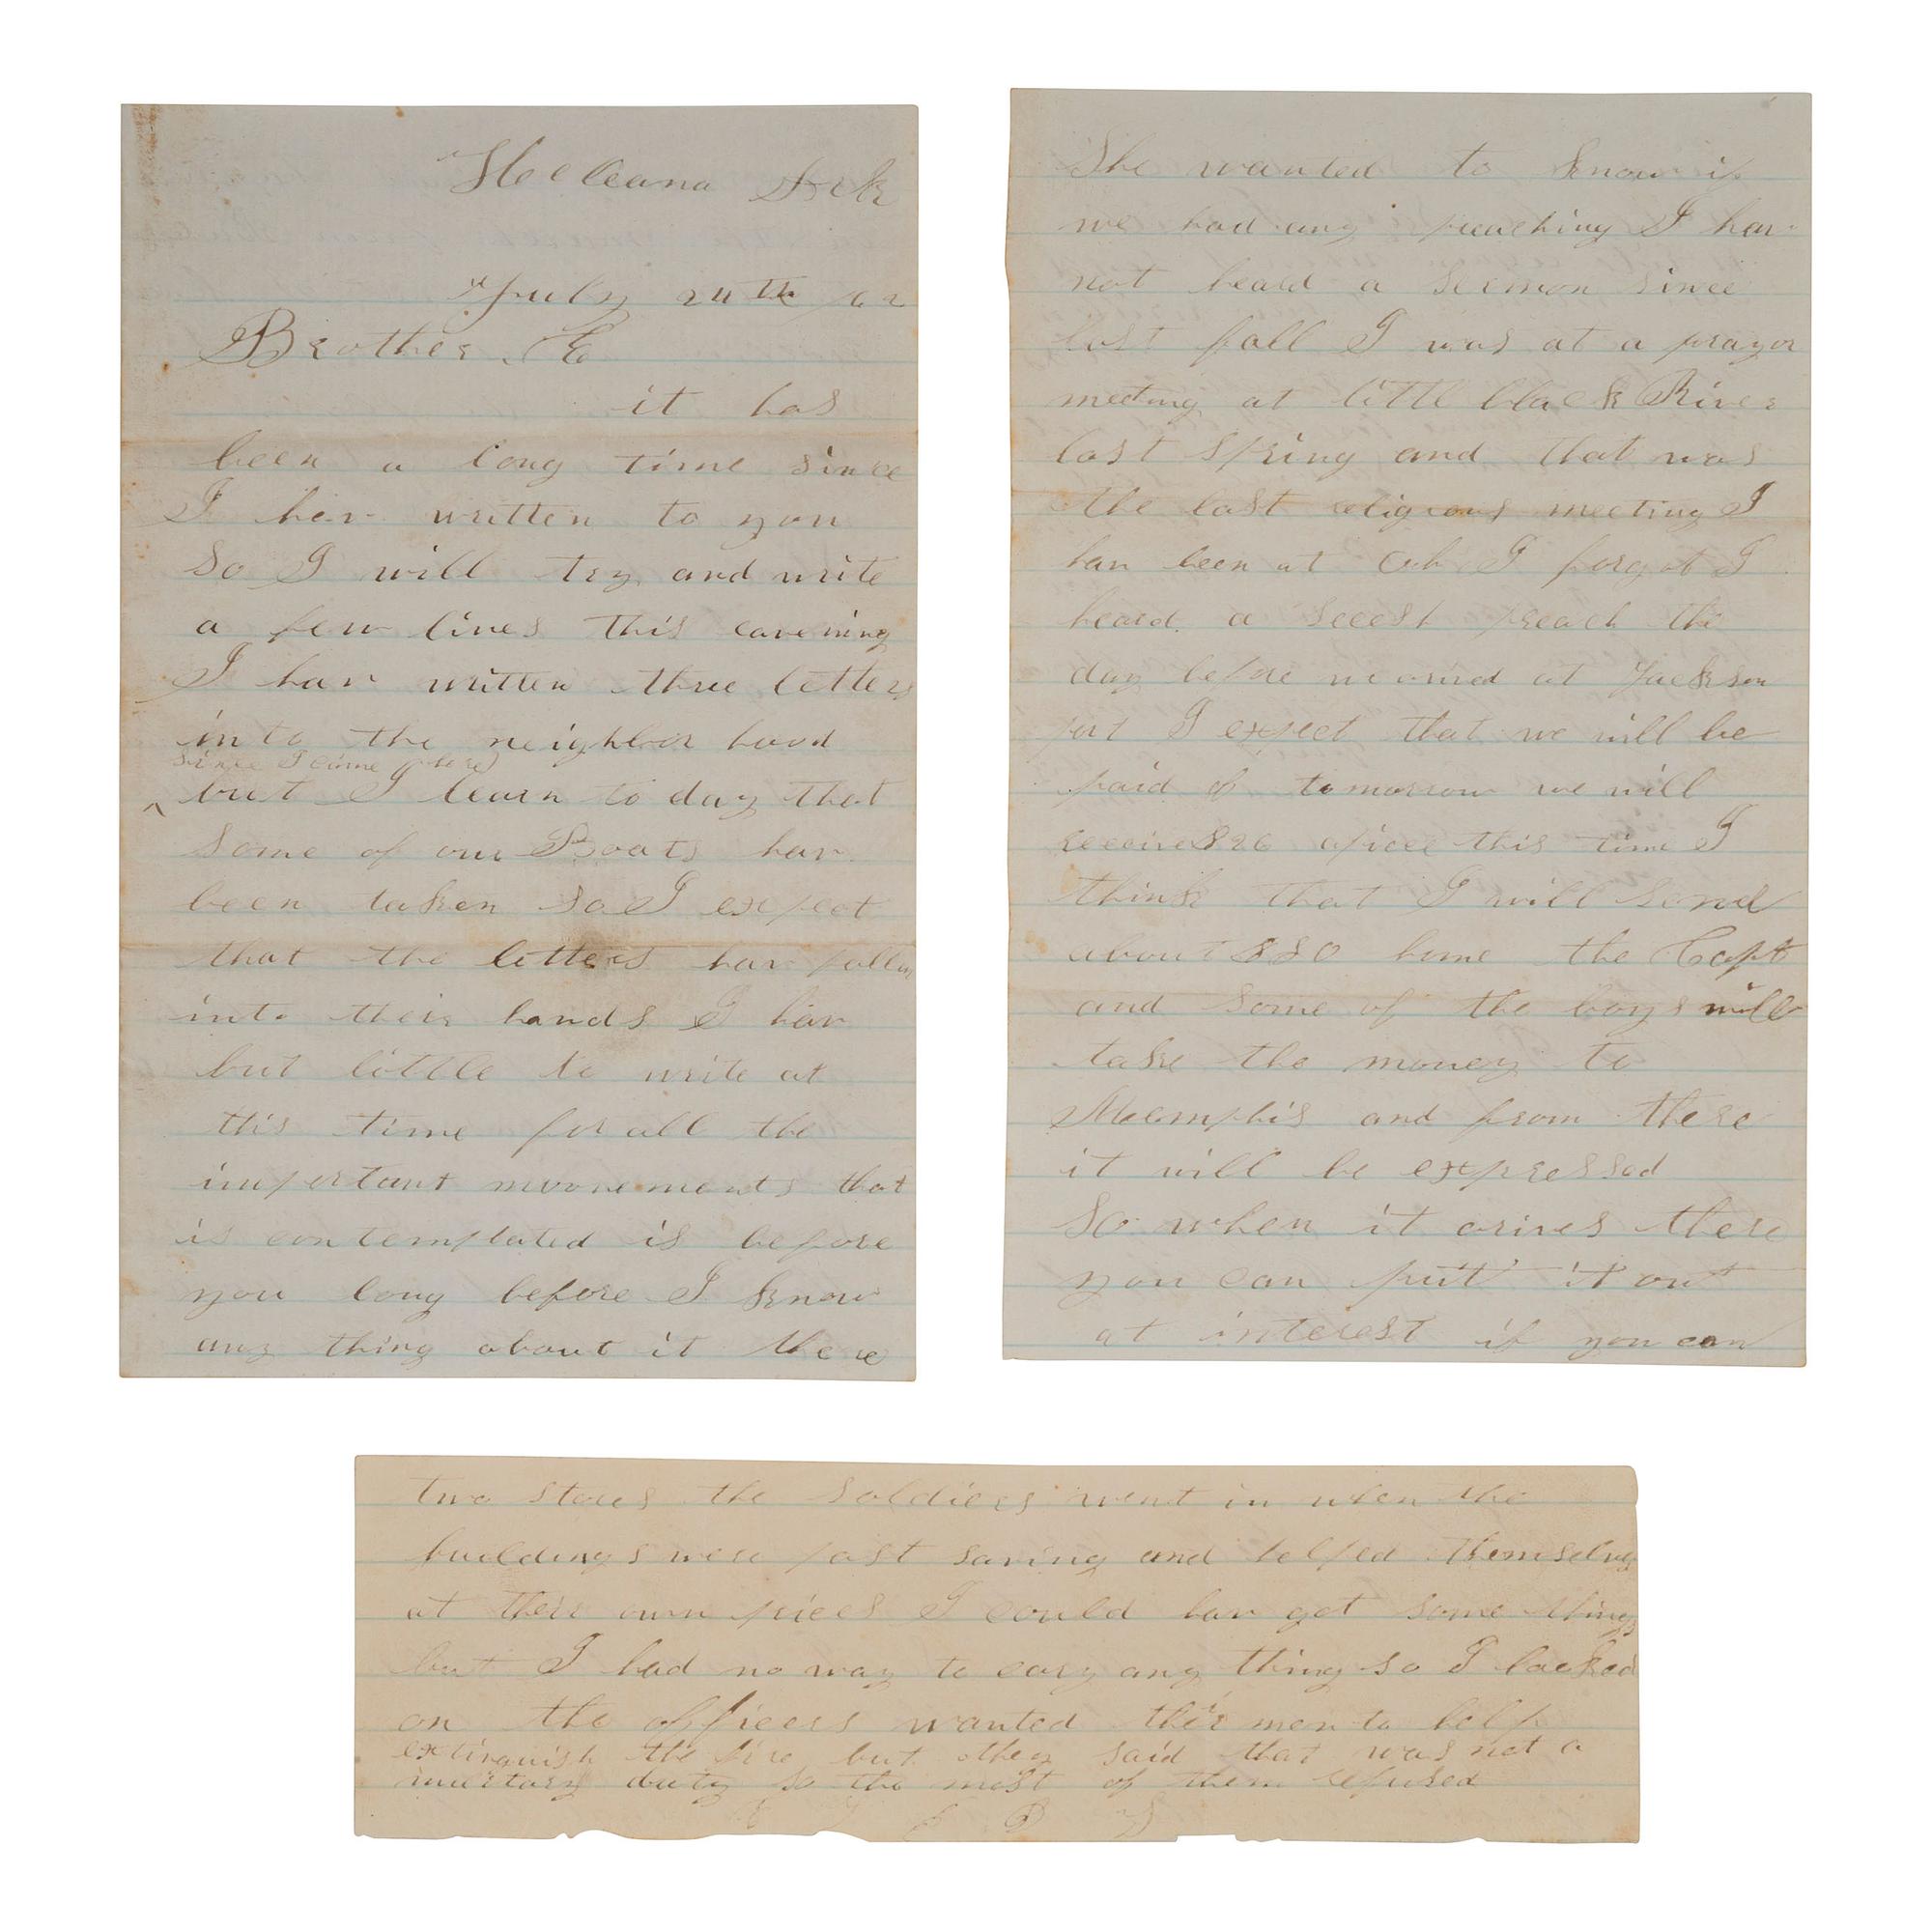 Helleana Ark
July 24th 62
Brother E
it has
been a long time since
I hav written to you
So I will try and write
a few lines this eavening
I hav written three letters
into the neighbor hood
since I came here
^ but I learn to day that
some of our Boats hav
been taken so I expect
that the letters hav fallen
into their hands I hav
but little to write at
this time for all the
important moovements that
is contemplated is before
you long before I know
any thing about it there
She wanted to know if
we had any preaching I hav
not heard a sermon since
last fall I was at a prayer
meeting at little black River
last Spring and that was
the last religious meeting I
hav been at I forgot I
heard a secesh preach the
day before we arived at Jackson
port I expect that we will be
paid of tomorrow we will
receive $26 apiece this time I
think that I will send
about $20 home the Capt
and some of the boys will
take the money to
Memphis and from there
it will be expressed
So when it arives there
you can put it out
at interest if you can
two stores the soldiers went in when the
buildings were past saving and helped themselves
at their own prices I could hav got some things
but I had no way to cary any thing so I looked
on the officers wanted their men to help
extinguish the fire but they said that was not a
military duty so the most of them refused